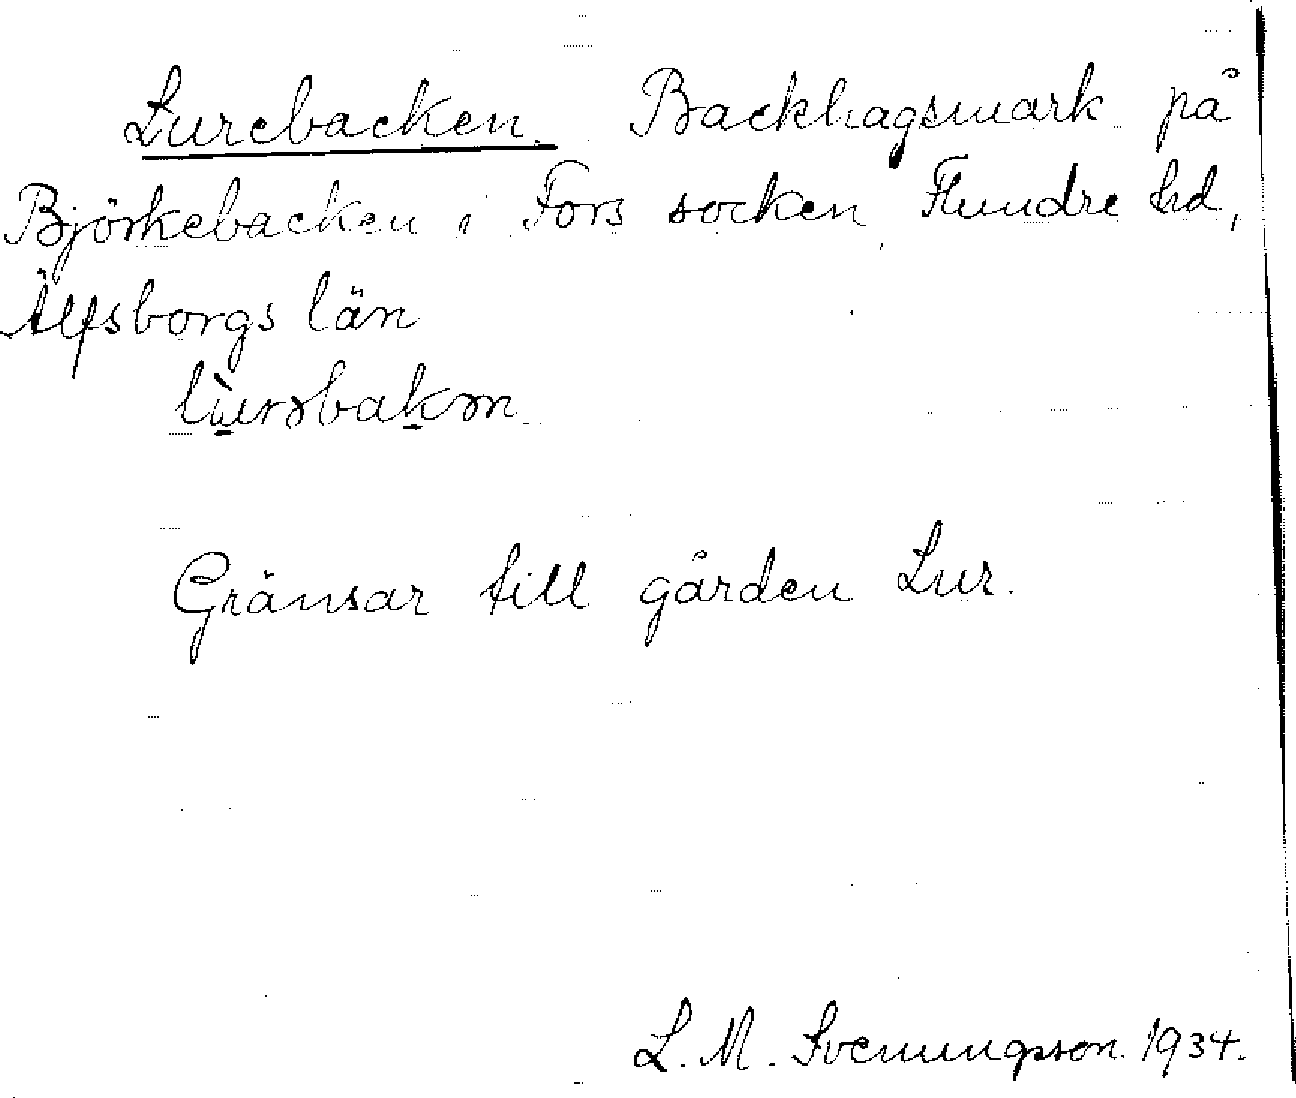 Lurebacken. Backhagsmark på
Björkebacken i Fors socken, Flundre hd,
Älfsborgs län
lùrəbakən
Gränsar till gården Lur.
L. M. Svenungsson 1934.